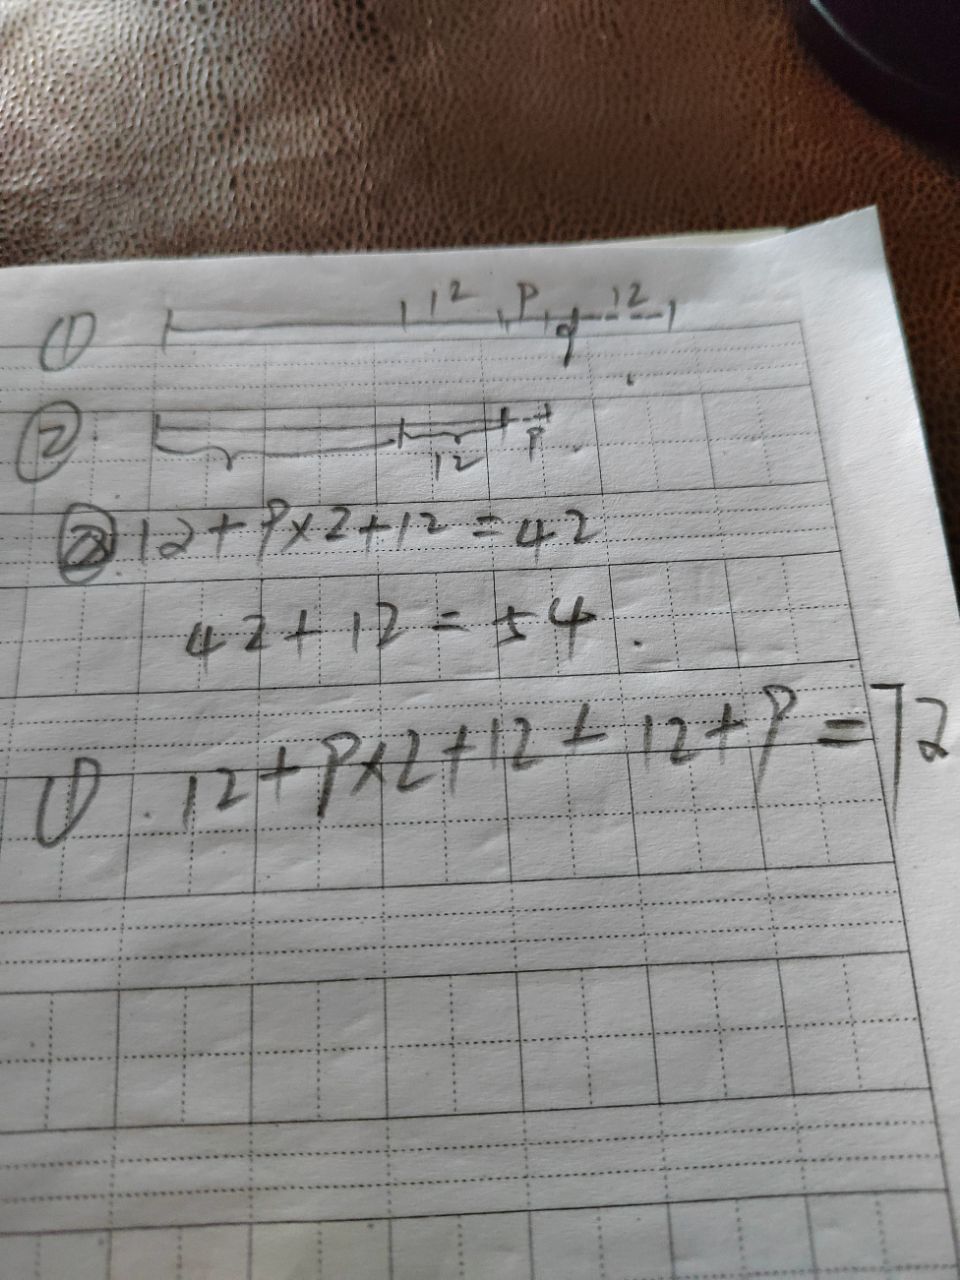 ① 12 9 12
9
②
12 9
② 12+9×2+12=42
42+12=54.
①. 12+9×2+12+12+9=72